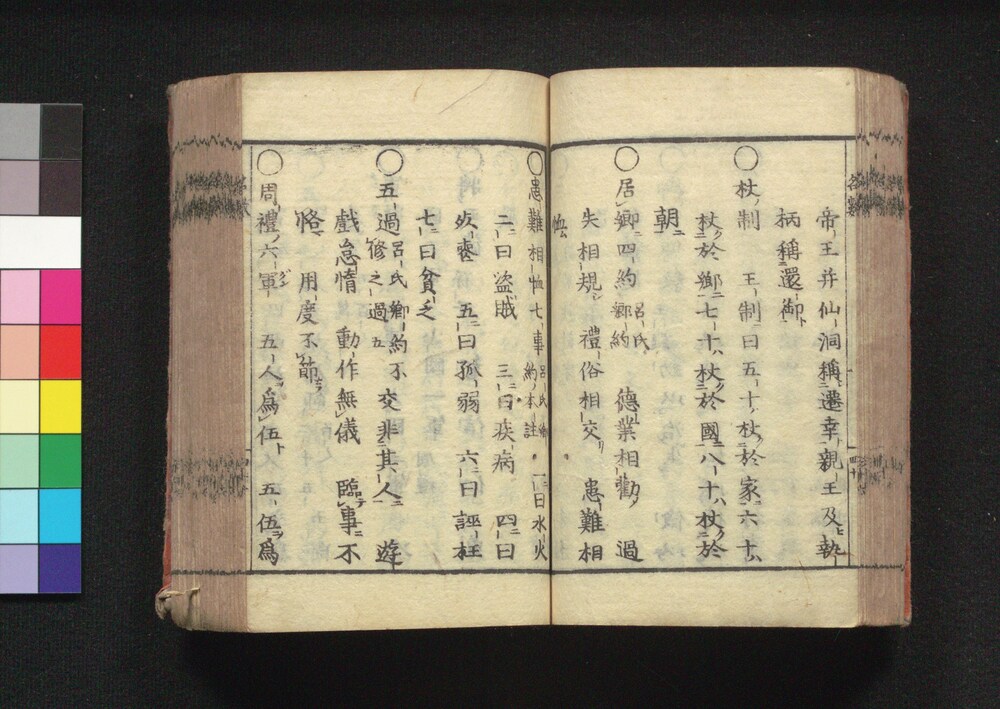 帝王并仙洞稱遷幸親王及執
柄稱還御
○杖制 王制曰五十杖於家六十
杖於鄉七十杖於國八十杖於
朝
○居鄉四約 呂氏鄉約 德業相勸 過
失相規 禮俗相交 患難相
恤
○患難相恤七事 呂氏鄉約本註 一曰水火
二曰盗賊 三曰疾病 四曰
五曰孤弱 六曰誣枉
七曰貧乏
○五過 呂氏鄉約不修之過五 交非其人 遊
戲怠惰 動作無儀 臨事不
恪 用度不節
○周禮六軍 五人爲伍 五伍爲